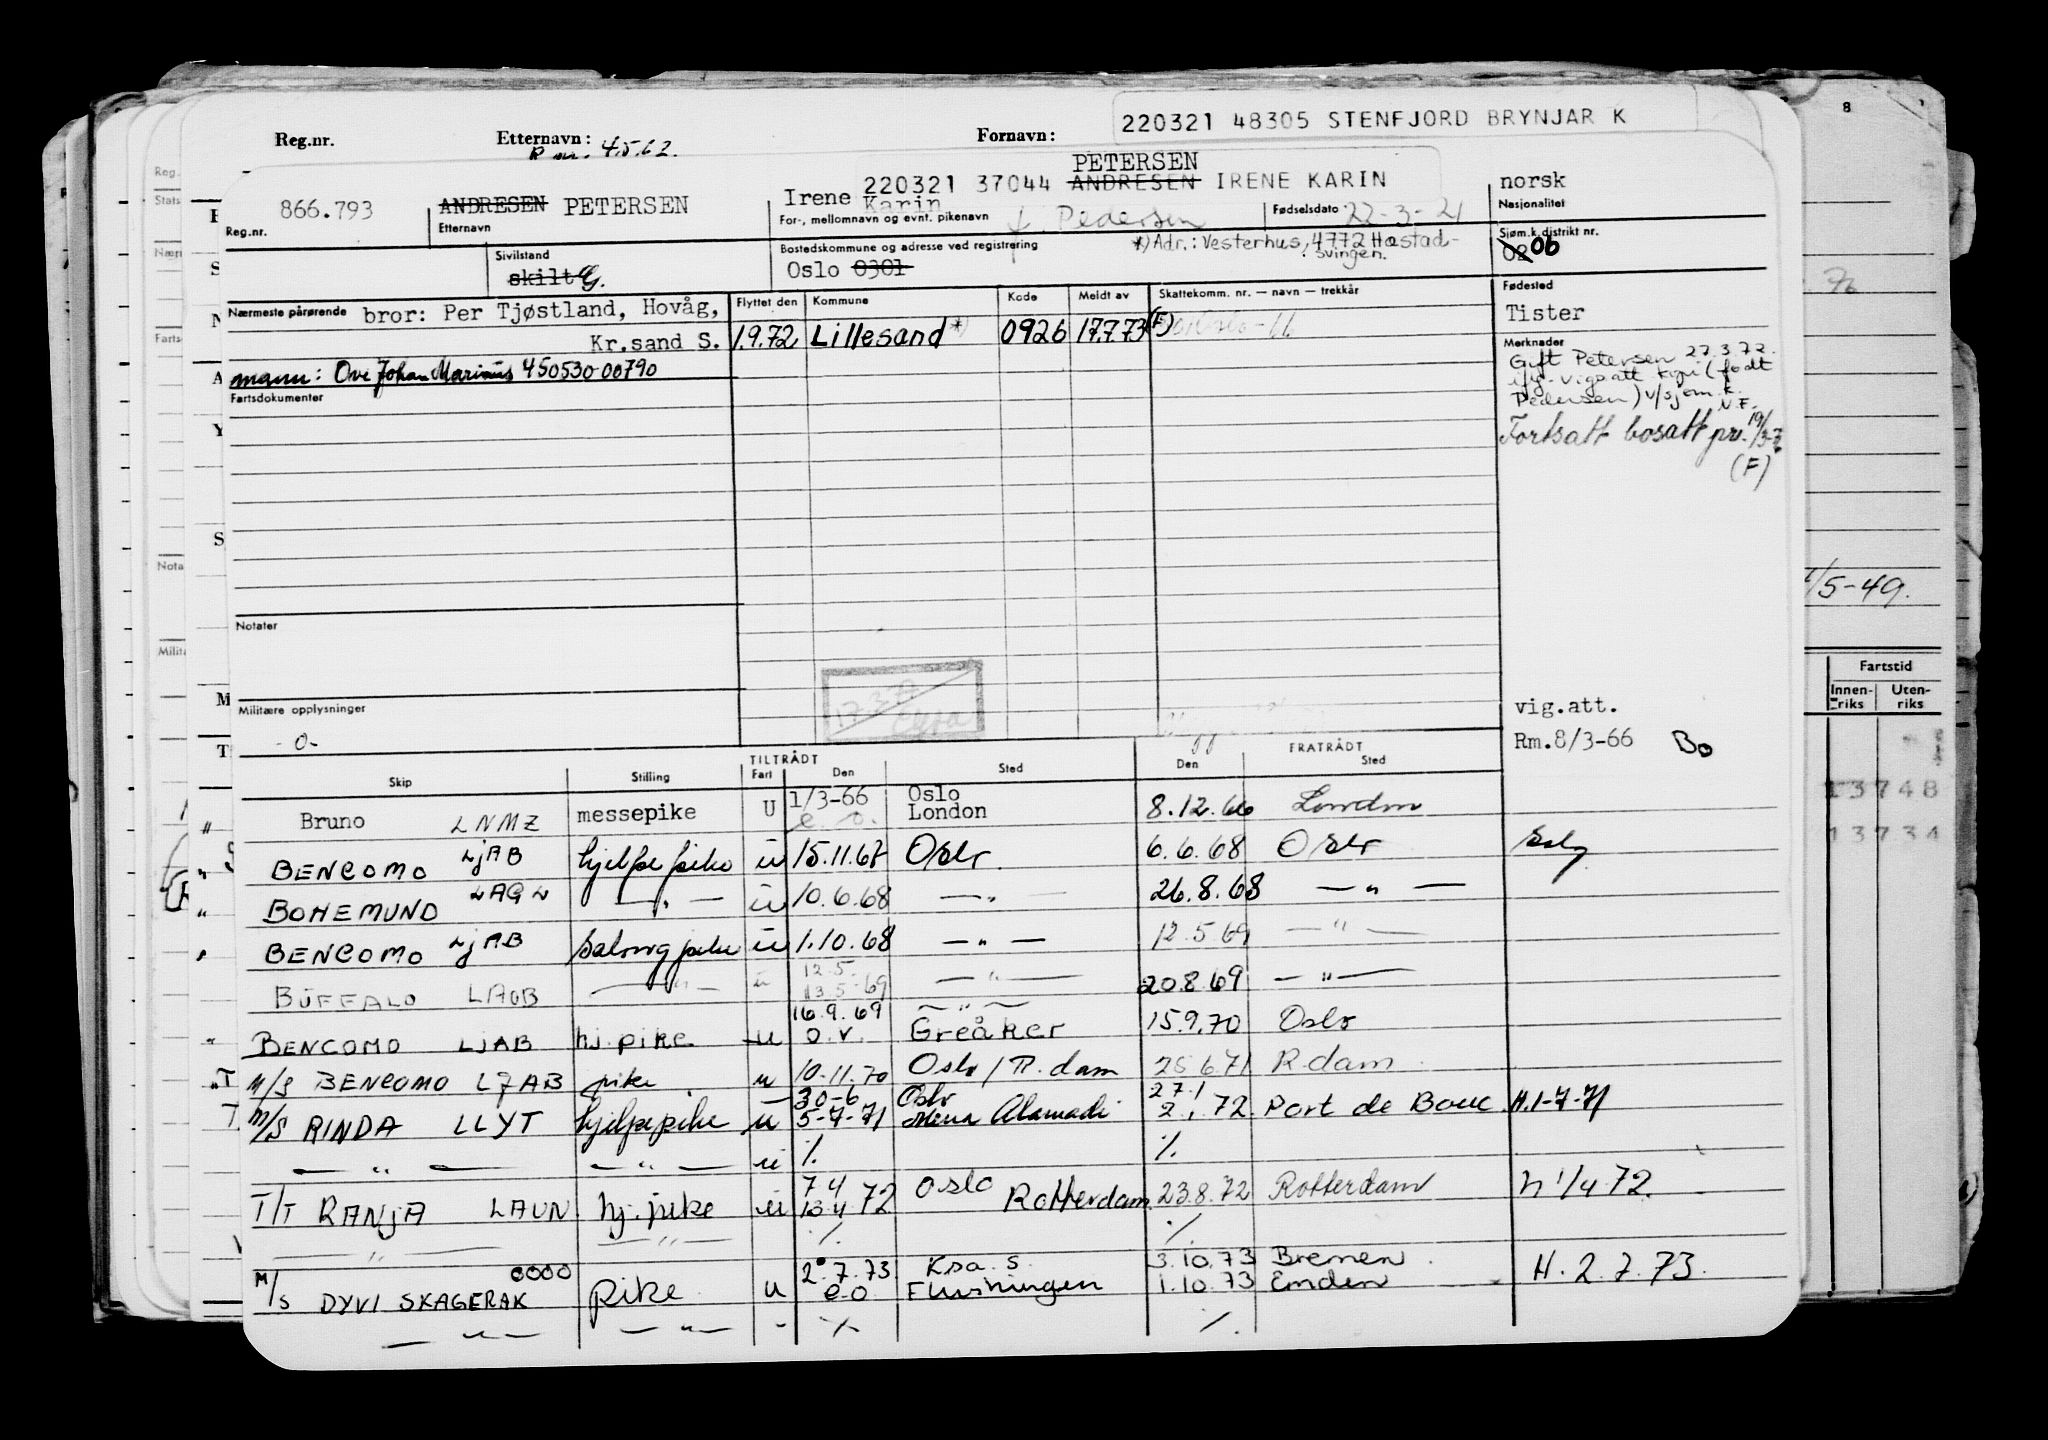 220321 48305 STENFJORD BRYNJAR K
Reg.nr. Etternavn: Fornavn:
4.5.62.
PETERSEN
220321 37044 ANDRESEN IRENE KARIN
866.793 ANDRESEN PETERSEN Irene Karin norsk
Reg.nr. Etternavn For-, mellomnavn og evnt. pikenavn f. Pedersen Fødselsdato 22-3-21 Nasjonalitet
Sivilstand Bostedskommune og adresse ved registrering *) Adr.: Vesterhus, 4772 Høstad- Sjøm.k.distrikt nr.
svingen.
skilt G. Oslo 0301 02 06
Nærmeste pårørende bror: Per Tjøstland, Hovåg, Flyttet den Kommune Kode Meldt av Skattekomm. nr. — navn — trekkår Fødested
Kr.sand S. 1.9.72 Lillesand *) 0926 17.7.73 (F) Tister
mann: Ove Johan Marinius 450530 00790
Merknader
Gift Petersen 27.3.72.
Pedersen) v/sjøm.k.
N.F.
Fortsatt bosatt pr. 19/3-7
(F)
Fartsdokumenter
Notater
17.3.77
Militære opplysninger
-0-
vig.att.
Rm.8/3-66 Bo
TILTRÅDT FRATRÅDT
Skip Stilling Fart Den Sted Den Sted
" Bruno LNMZ messepike U 1/3-66 Oslo 8.12.66 London
e. o. London
" BENCOMO LJAB hjelpepike u 15.11.67 Oslo 6.6.68 Oslo
" BOHEMUND LAGL — " — u 10.6.68 — " — 26.8.68 — " —
" BENCOMO LJAB salongpike u 1.10.68 — " — 12.5.69 — " —
BUFFALO LAOB — " — u 12.5. 13.5.69 — " — 20.8.69 — " —
" BENCOMO LJAB hj.pike u 16.9.69 o.v. — " — Greåker 15.9.70 Oslo
"T M/S BENCOMO LJAB pike u 10.11.70 Oslo / R.dam 25.6.71 R.dam
T M/S RINDA LLYT hjelpepike u 30-6 5-7-71 Oslo Mena Alamadi 27.1 2.1.72 Port de Bouc H.1-7-71
— " — — " — u % %
T/T RANJA LAUN hj.pike u 7 4 13 4 72 Oslo Rotterdam 23.8.72 Rotterdam h 1/4 72.
— " — — " — % %
M/S DYVI SKAGERAK OOOO pike u 2.7.73 e.o. Krsa. S. Flushingen 3.10.73 Bremen 1.10.73 Emden H. 2.7.73.
— " — — " — - % %
8
/5-49.
Fartstid
Innen-riks Uten-riks
13748
13734